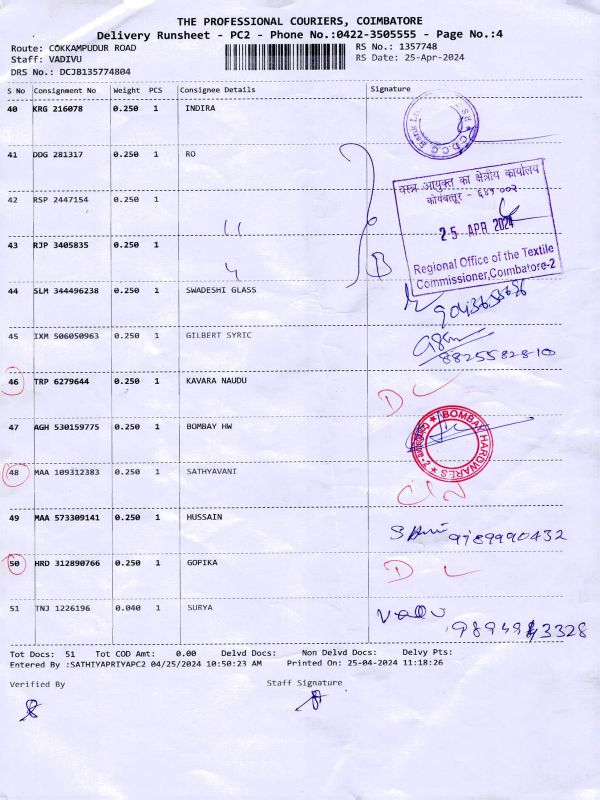 THE PROFESSIONAL COURIERS, COIMBATORE
Delivery Runsheet - PC2 - Phone No.:0422-3505555 - Page No.:4
Route: COKKAMPUDUR ROAD
Staff: VADIVU
DRS No.: DCJB135774804
RS No.: 1357748
RS Date: 25-Apr-2024
S No Consignment No Weight PCS Consignee Details Signature
40 KRG 216078 0.250 1 INDIRA
41 DDG 281317 0.250 1 RO
42 RSP 2447154 0.250 1
43 RJP 3405835 0.250 1
वस्त्र आयुक्त का क्षेत्रीय कार्यालय
कोयंबत्तूर - ६४१ ००२
25 APR 2024
Regional Office of the Textile
Commissioner,Coimbatore-2
44 SLM 344496238 0.250 1 SWADESHI GLASS
45 IXM 506050963 0.250 1 GILBERT SYRIC
8825582810
46 TRP 6279644 0.250 1 KAVARA NAUDU
DL
47 AGH 530159775 0.250 1 BOMBAY HW
BOMBAY HARDWARES
48 MAA 109312383 0.250 1 SATHYAVANI
49 MAA 573309141 0.250 1 HUSSAIN
9789990432
50 HRD 312890766 0.250 1 GOPIKA
DL
51 TNJ 1226196 0.040 1 SURYA
Tot Docs: 51 Tot COD Amt: 0.00 Delvd Docs: Non Delvd Docs: Delvy Pts:
Entered By :SATHIYAPRIYAPC2 04/25/2024 10:50:23 AM Printed On: 25-04-2024 11:18:26
Verified By Staff Signature